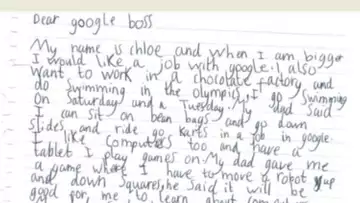 Dear google boss
My name is Chloe and when I am bigger
I would like a job with google. I also
want to work in a chocolate factory and
do swimming in the olympics. I go swimming
on Saturday and a Tuesday. My dad said
I can sit on bean bags and go down
slides and ride go karts in a job in google.
I like computers too and have a
tablet I play games on. My dad gave me
a game where I have to move a robot up
and down squares, he said it will be
good for me to learn about